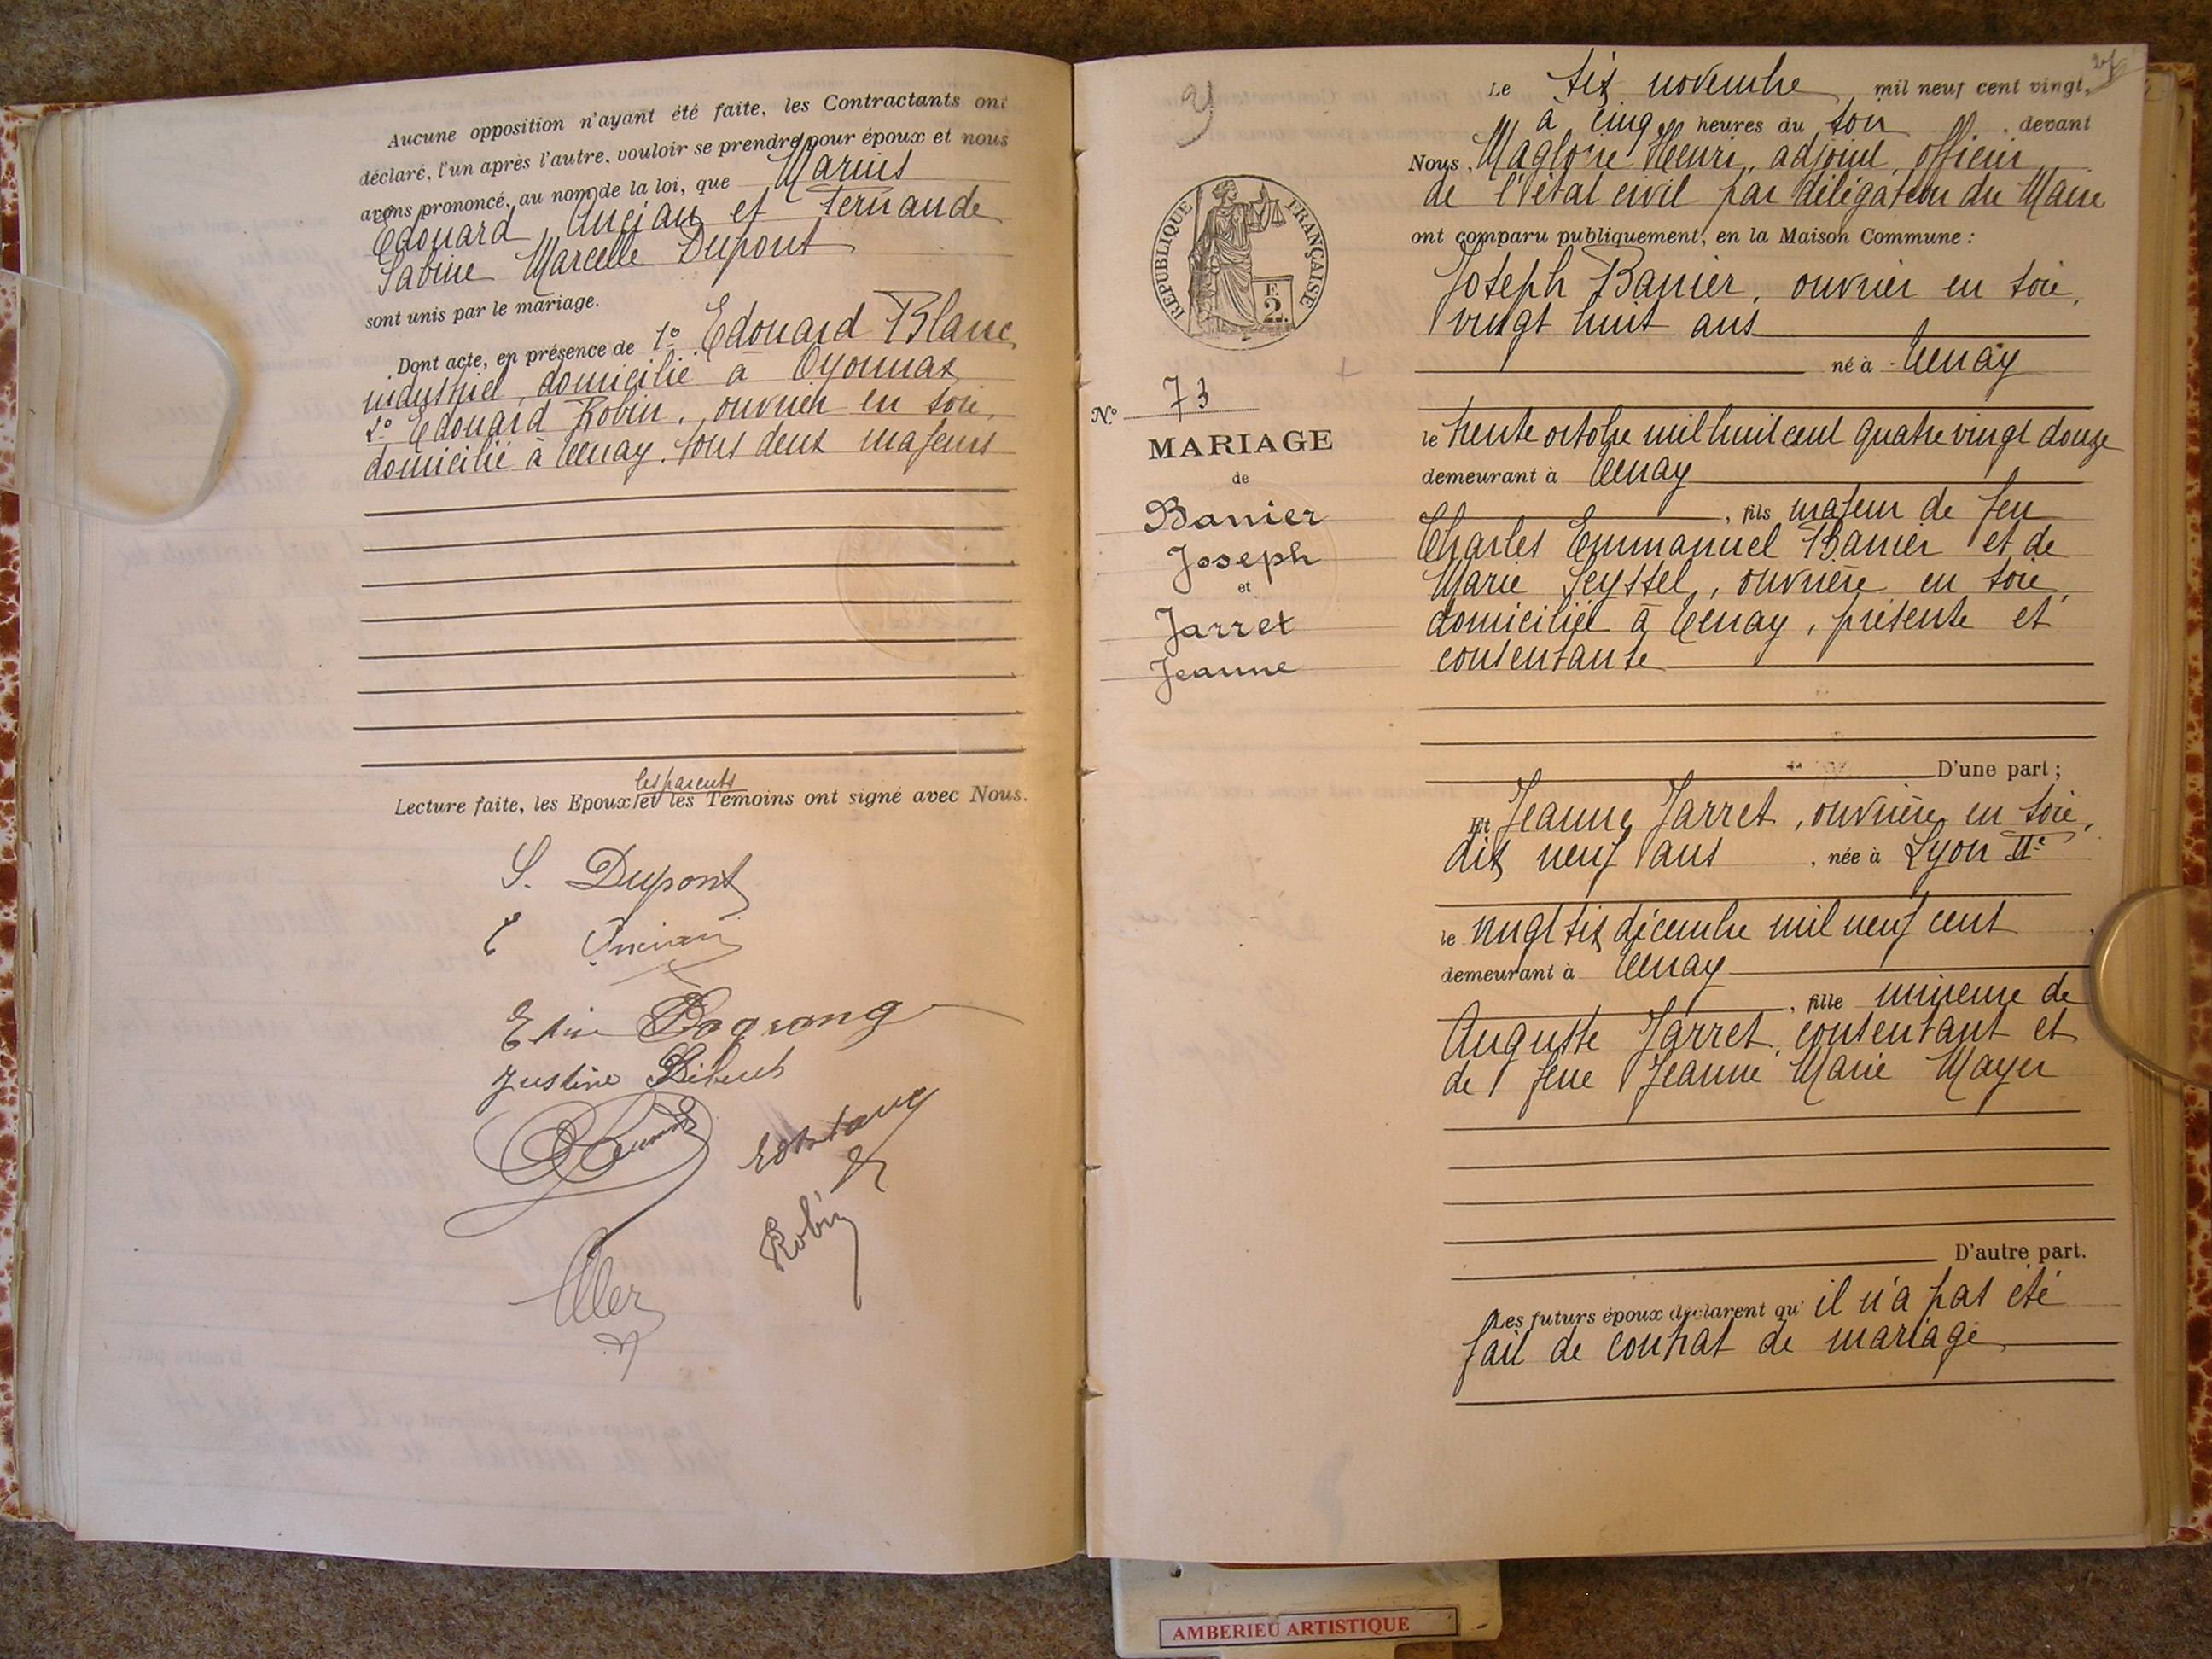 Aucune opposition n'ayant été faite, les Contractants ont
déclaré, l'un après l'autre, vouloir se prendre pour époux et nous
avons prononcé, au nom de la loi, que Marius
Edouard Ancian et Fernande
Sabine Marcelle Dupont
sont unis par le mariage.
Dont acte, en présence de 1º Edouard Blanc,
industriel, domicilié à Oyonnax
2º Edouard Robin, ouvrier en soie,
domicilié à Tenay, tous deux majeurs
les parents
Lecture faite, les Epoux et les Témoins ont signé avec Nous.
S. Dupont
E Ancian
Justine
Robin
2
Le six novembre mil neuf cent vingt,
à cinq heures du soir, devant
Nous, Magloire Henri, adjoint, officier
de l'état civil par délégation du Maire
ont comparu publiquement, en la Maison Commune :
Joseph Banier, ouvrier en soie,
vingt huit ans
né à Tenay
le trente octobre mil huit cent quatre vingt douze
demeurant à Tenay
, fils majeur de feu
Charles Emmanuel Banier et de
Marie Seyssel, ouvrière en soie,
domiciliée à Tenay, présente et
consentante
D'une part ;
Et Jeanne Jarret, ouvrière en soie,
dix neuf ans, née à Lyon IIe
le vingt six décembre mil neuf cent
demeurant à Tenay
, fille mineure de
Auguste Jarret, consentant et
de feue Jeanne Marie Mayer
D'autre part.
Les futurs époux déclarent qu'il n'a pas été
fait de contrat de mariage
REPUBLIQUE FRANÇAISE
F.
2.
Nº 73
MARIAGE
de
Banier
Joseph
et
Jarret
Jeanne
AMBERIEU ARTISTIQUE